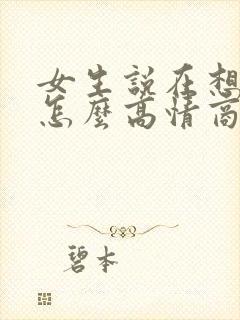 女生説在想
怎麼高情商
碧本